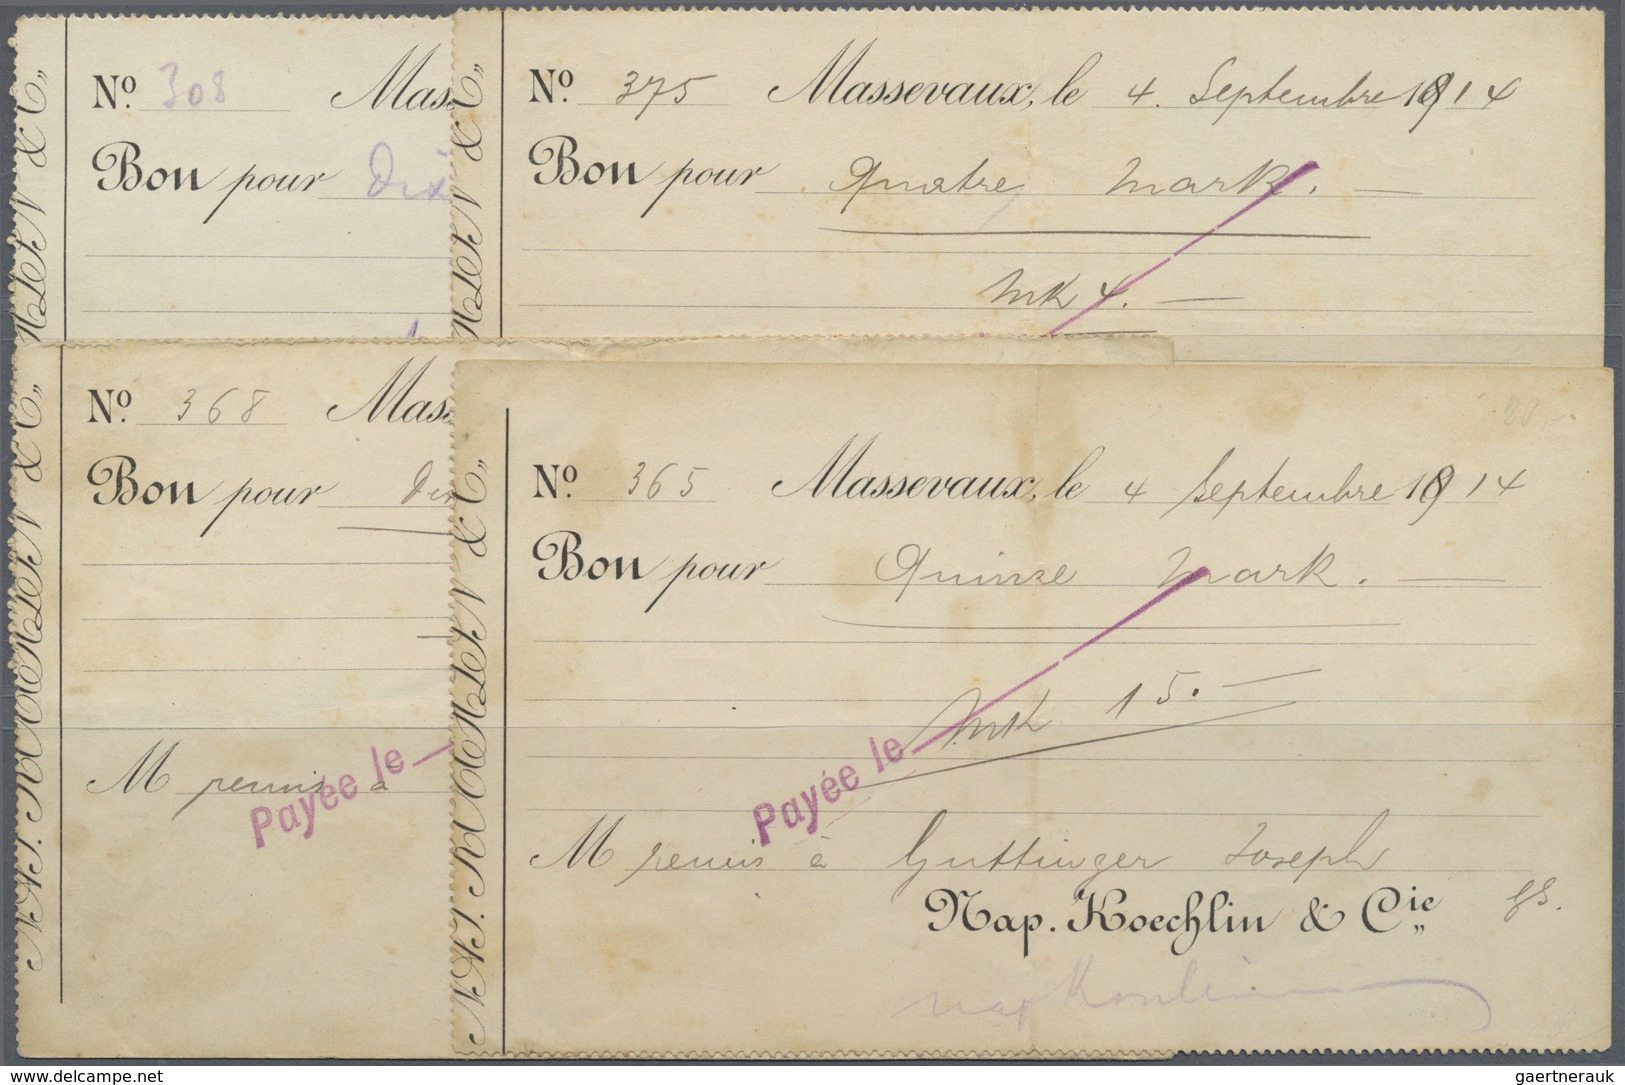 Nº 308 Mas
Bon pour Dix
NAP. KOECHLIN & C
Nº 375 Massevaux, le 4. Septembre 1914
Bon pour Quatre Mark. —
Mk 4. —
Nº 368 Mass
Bon pour
M remis à
Payée le
NAP. KOECHLIN & C
Nº 365 Massevaux, le 4 Septembre 1914
Bon pour Quinze Mark. —
Mk 15. —
Payée le
M remis à Guttinger Joseph
Nap. Koechlin & Cie
Nap Koechlin
NAP. KOECHLIN & C
www.delcampe.net
gaertnerauk